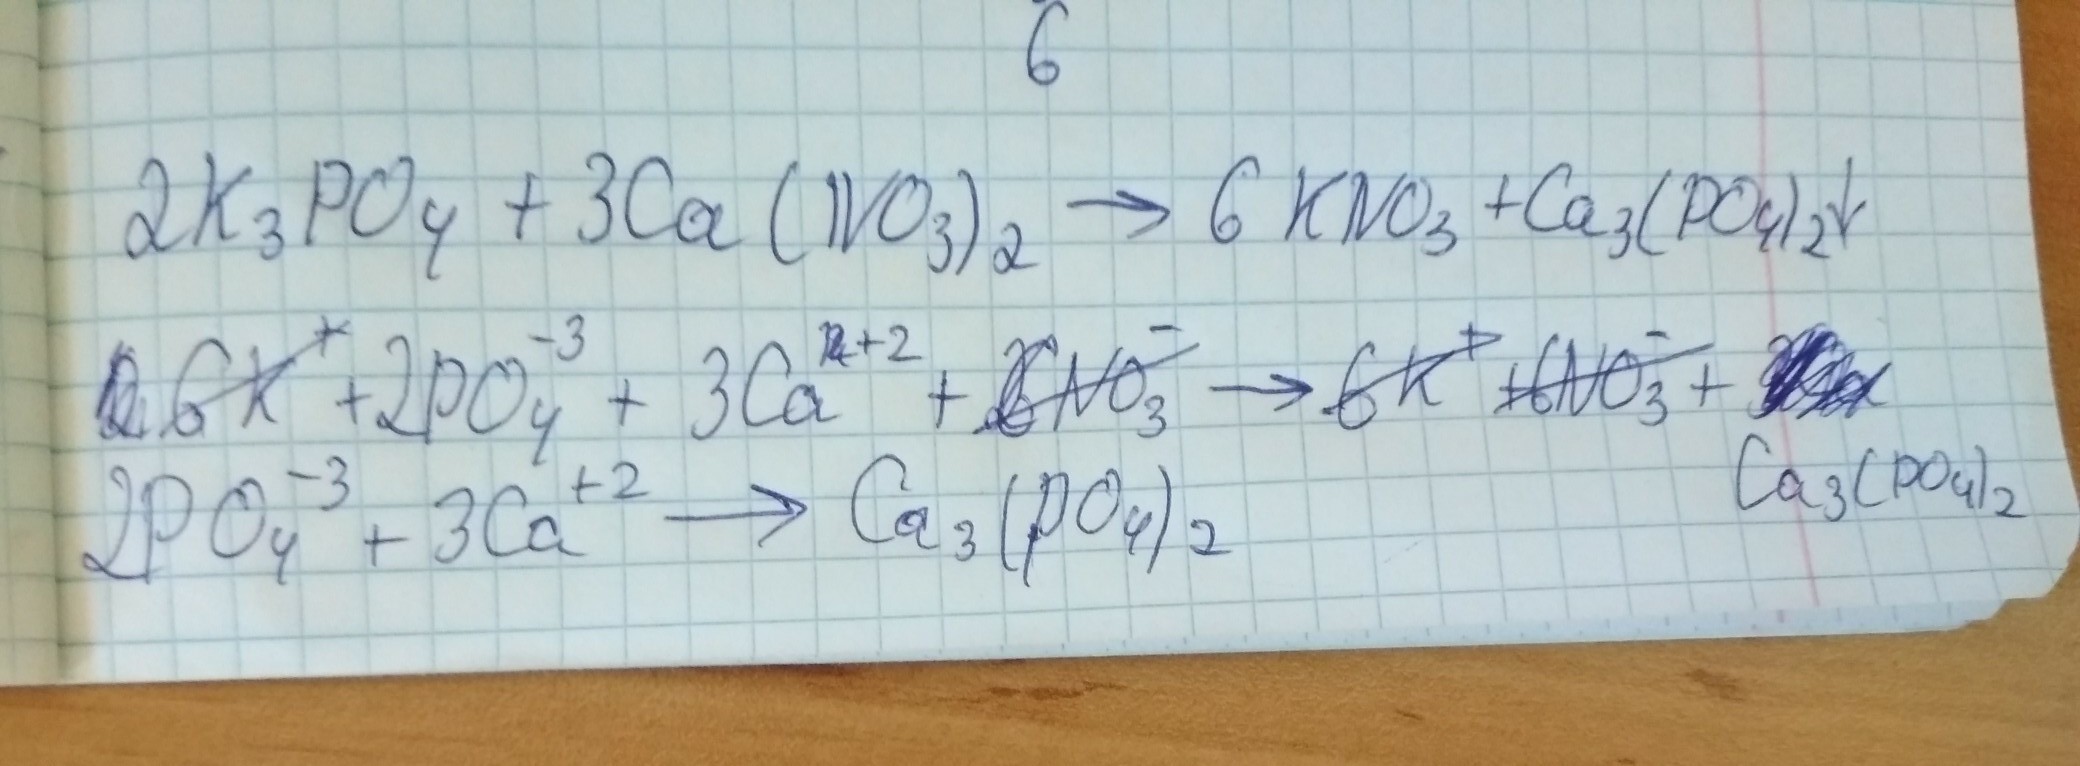 6
2K₃PO₄ + 3Ca(NO₃)₂ → 6KNO₃ + Ca₃(PO₄)₂↓
6K⁺ + 2PO₄⁻³ + 3Ca⁺² + 6NO₃⁻ → 6K⁺ + 6NO₃⁻ +
Ca₃(PO₄)₂
2PO₄⁻³ + 3Ca⁺² → Ca₃(PO₄)₂